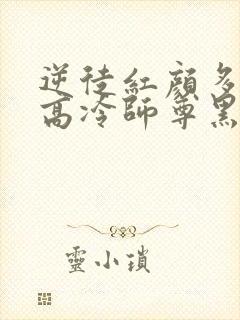 逆徒紅顔多
高冷師尊黑
靈小瑣